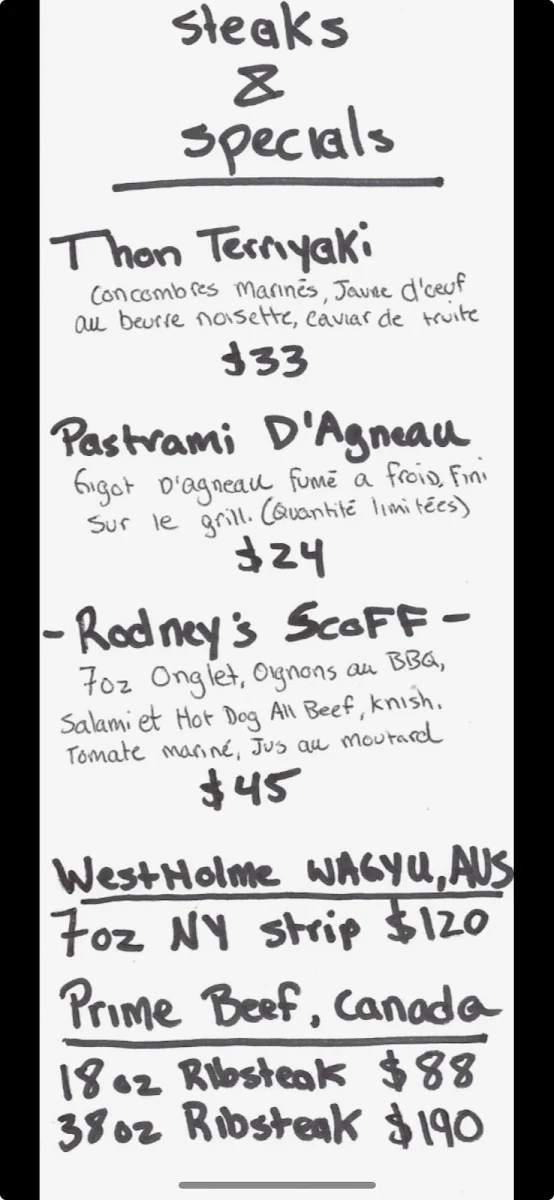 steaks
&
specials
Thon Terriyaki
Concombres Marinés, Jaune d'oeuf
au beurre noisette, caviar de truite
$33
Pastrami D'Agneau
Gigot D'agneau fumé a froid, Fini
Sur le grill. (Quantité limitées)
$24
- Rodney's ScoFF -
7oz Onglet, Oignons au BBQ,
Salami et Hot Dog All Beef, knish.
Tomate mariné, Jus au moutard
$45
WestHolme WAGYU, AUS
7oz NY strip $120
Prime Beef, Canada
18oz Ribsteak $88
38oz Ribsteak $190